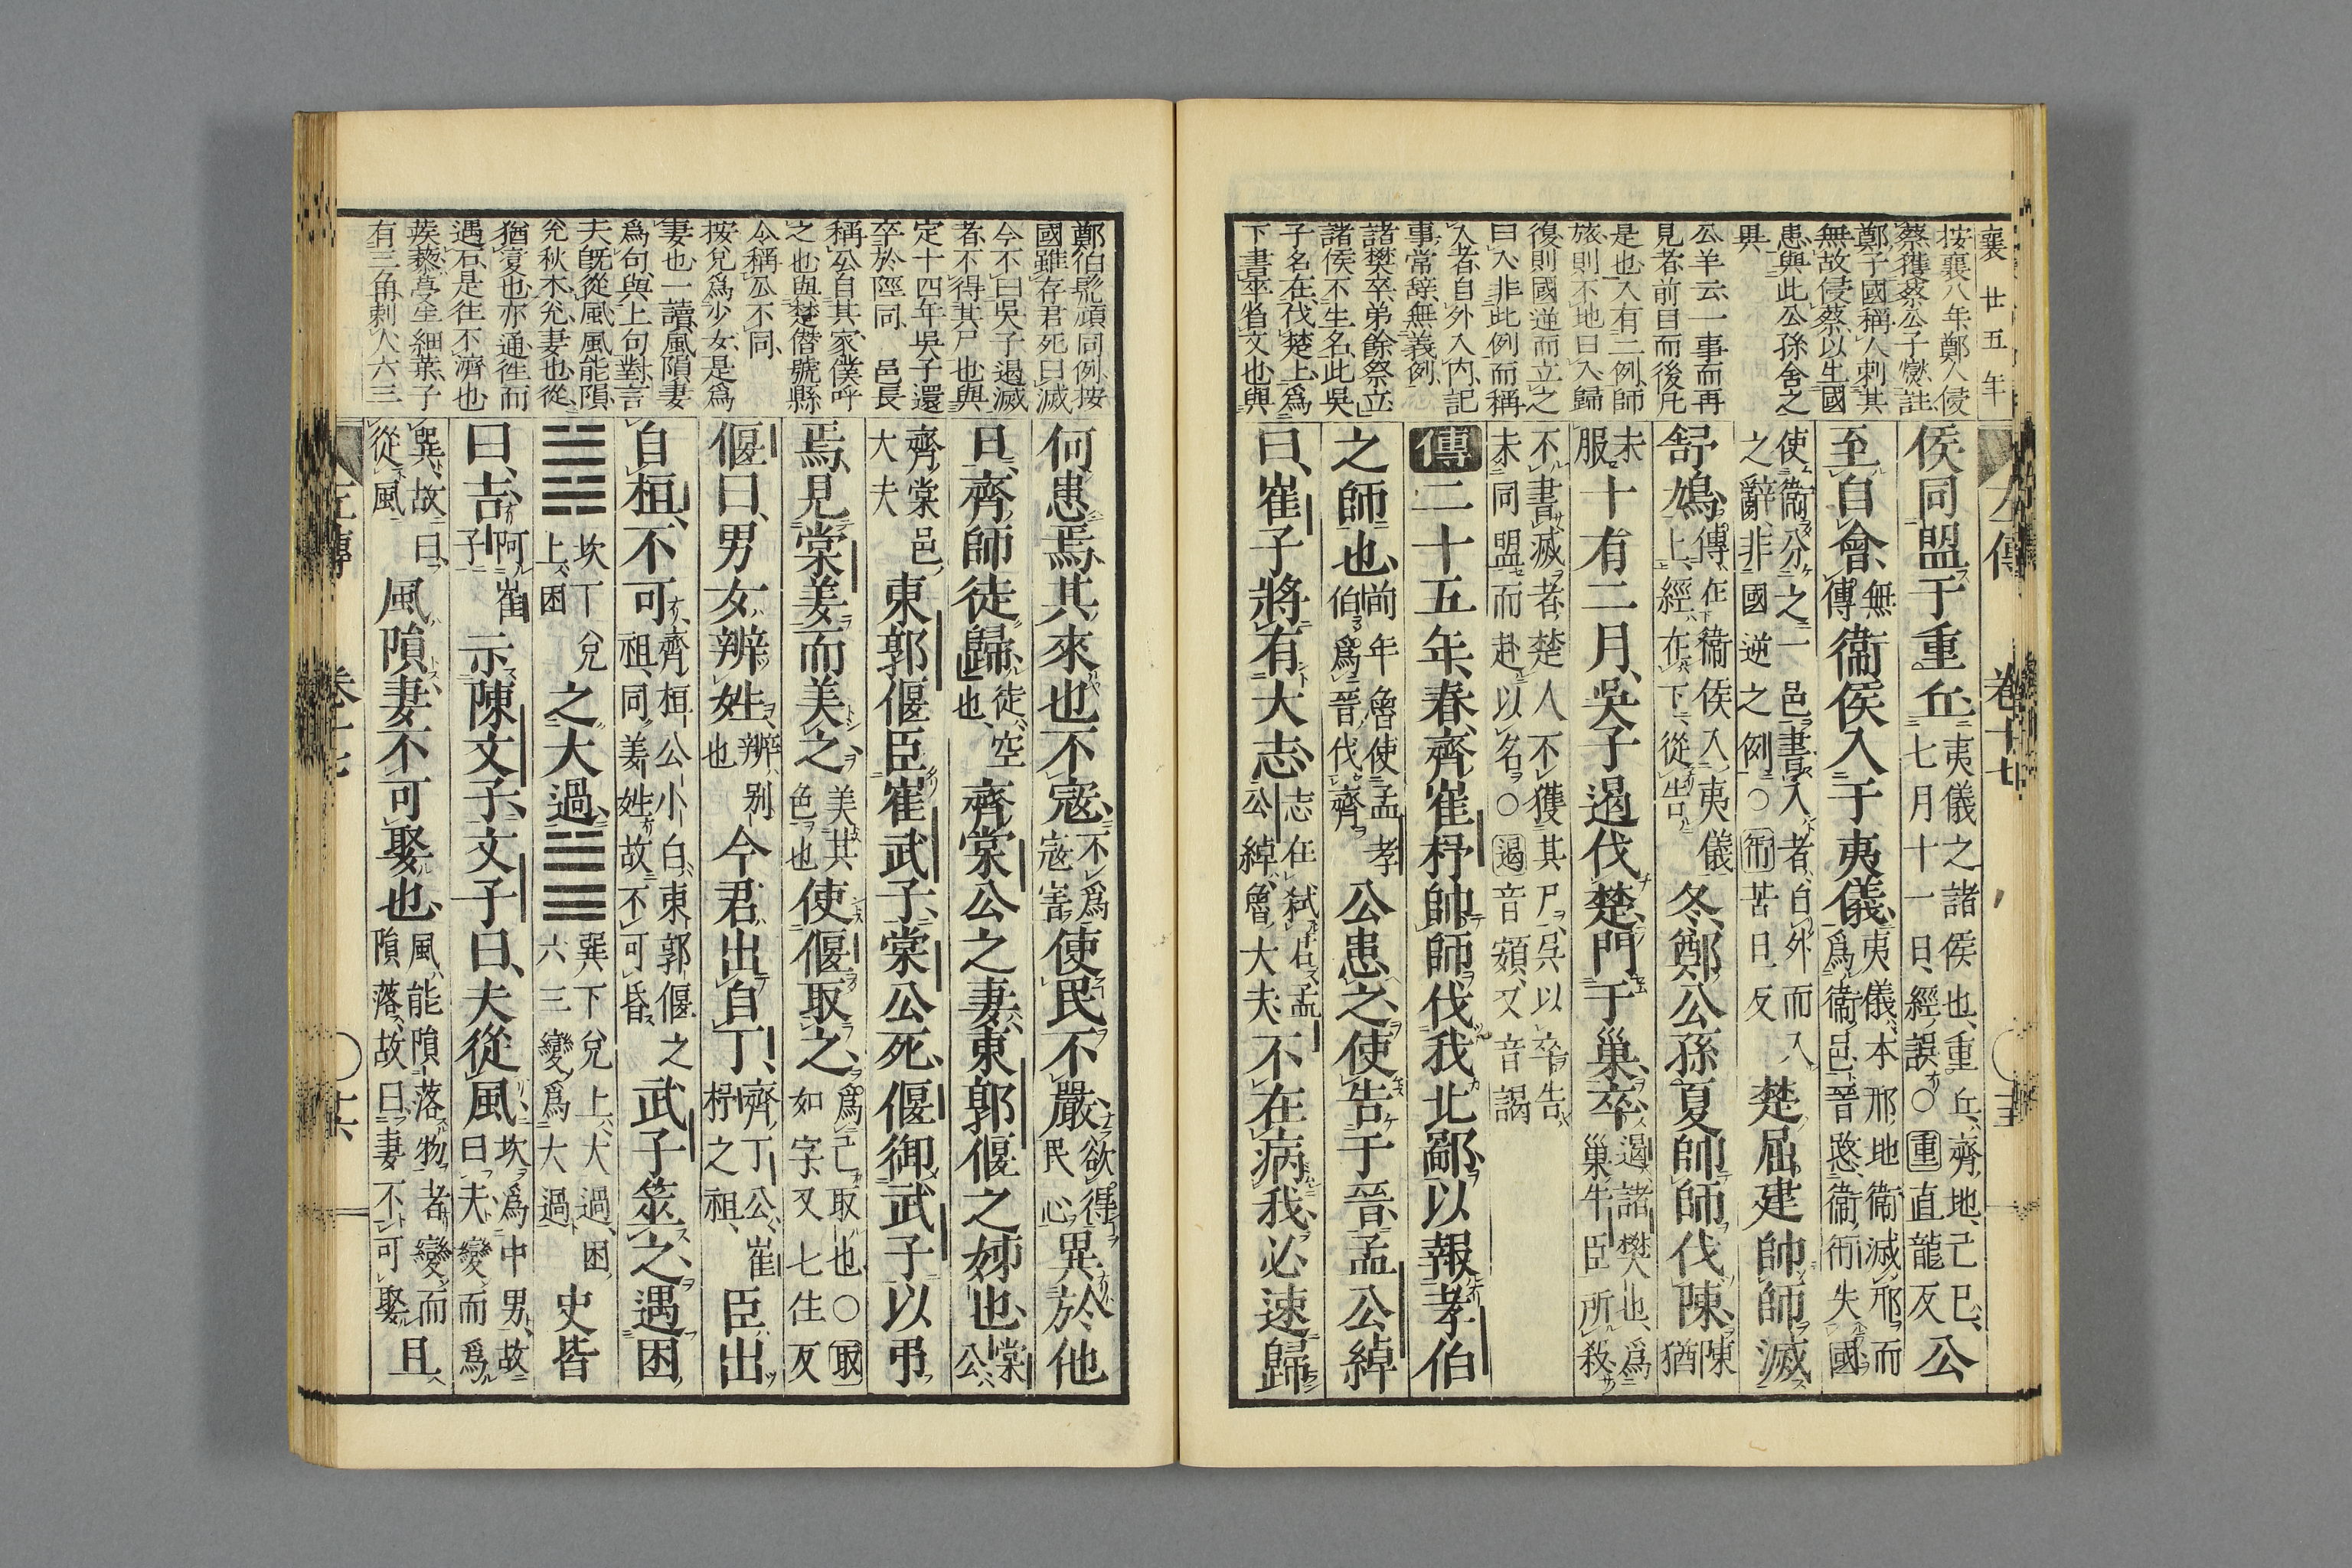 襄 廿五年
按襄八年鄭人侵
蔡獲蔡公子燮註
鄭子國稱人刺其
無故侵蔡以生國
患與此公孫舍之
異
公羊云一事而再
見者前目而後凡
是也入有二例師
旅則不地曰入歸
復則國逆而立之
曰入非此例而稱
入者自外入内記
事常辞無義例
諸樊卒弟餘祭立
諸侯不生名此吳
子名在伐楚上爲
下書卒省文也與
左傳 卷十七
侯同盟于重丘夷儀之諸侯也重丘齊地己巳
七月十二日經誤○重直龍反公
至自會無傳衛侯入于夷儀夷儀本邢地衛滅邢而
爲衛邑晉愍衛衎失國
使衛分之一邑書入者自外而入
之辭非國逆之例○衎苦旦反楚屈建帥師滅
舒鳩傳在衛侯入夷儀
上經在下從告冬鄭公孫夏帥師伐陳陳猶
未
服十有二月吳子遏伐楚門于巢卒遏諸樊也爲
巢牛臣所殺
不書滅者楚人不獲其尸吳以卒告
未同盟而赴以名○遏音頞又音謁
傳二十五年春齊崔杼帥師伐我北鄙以報孝伯
之師也前年魯使孟孝
伯爲晉伐齊公患之使告于晉孟公綽
曰崔子將有大志志在弑君孟
公綽魯大夫不在病我必速歸
鄭伯髡頑同例按
國雖存君死曰滅
今不曰吳子遏滅
者不得其尸也與
定十四年吳子還
卒於陘同 邑長
稱公自其家僕呼
之也與楚僭號縣
令稱公不同
按兌爲少女是爲
妻也一讀風隕妻
爲句與上句對言
夫既從風風能隕
兌秋木兌妻也從
猶変也亦通徃而
遇石是徃不濟也
蒺藜蔓生細葉子
有三角刺人六三
何患焉其來也不寇不爲
寇害使民不嚴欲得
民心異於他
日齊師徒歸徒空
也齊棠公之妻東郭偃之姊也棠公
齊棠邑
大夫東郭偃臣崔武子棠公死偃御武子以弔
焉見棠姜而美之美其
色也使偃取之爲己取也○取
如字又七住反
偃曰男女辨姓辨別
也今君出自丁齊丁公崔
杼之祖臣出
自桓不可齊桓公小白東郭偃之
祖同姜姓故不可昏武子筮之遇困
坎下兌
上困之大過巽下兌上大過困
六三變爲大過史皆
曰吉阿崔
子示陳文子文子曰夫從風坎爲中男故
曰夫變而爲
巽故曰
從風風隕妻不可娶也風能隕落物者變而
隕落故曰妻不可娶且